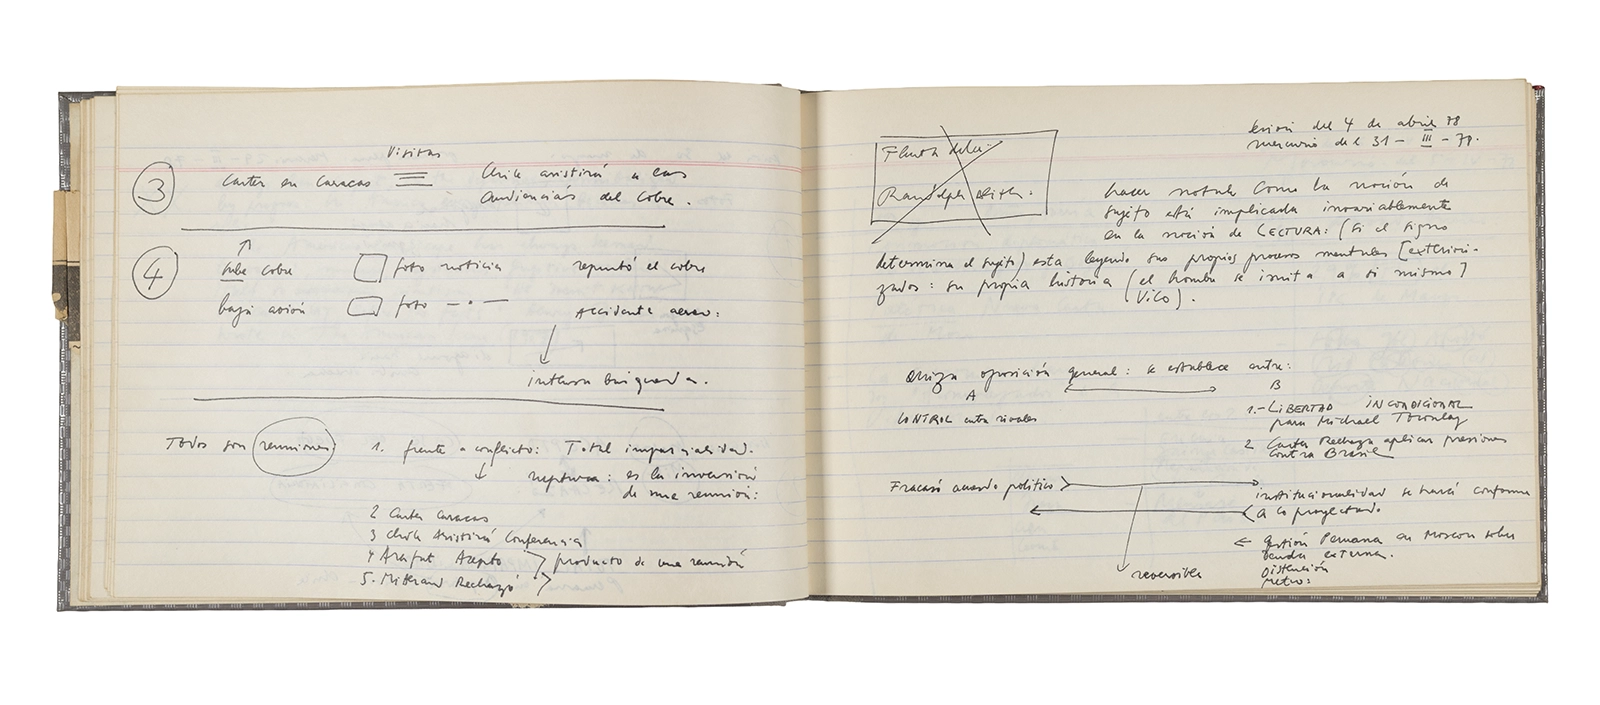 Visitas
3 Carter en Caracas Chile asistirá a las
audiencias del cobre.
4 sube cobre foto noticia repuntó el cobre
baja avión foto — · —
Accidente aereo:
intensa búsqueda.
Todos son reuniones 1. frente a conflicto: Total imparcialidad.
ruptura: es la inversión
de una reunión:
2 Carter Caracas
3 Chile Asistirá Conferencia
4 Arafat Acepto producto de una reunión
5. Mitterand Rechazó
sesión del 4 de abril 78
mercurio del 31 - III - 78.
Randolph
hacer notable como la noción de
sujeto está implicada invariablemente
en la noción de LECTURA: (si el signo
determina el sujeto) esta leyendo sus propios procesos mentales [exteriori-
zados: su propia historia (el hombre se imita a si mismo]
Vico).
Quiza oposición general: se establece entre:
A B
CONTROL entre rivales
1.- LIBERTAD INCONDICIONAL
para Michael Townley
2 Carter Rechaza aplicar presiones
contra Brasil
Fracasó acuerdo político
institucionalidad se hará conforme
a lo proyectado
gestión Peruana en Moscou sobre
deuda externa.
reversible
Distención
Metro: